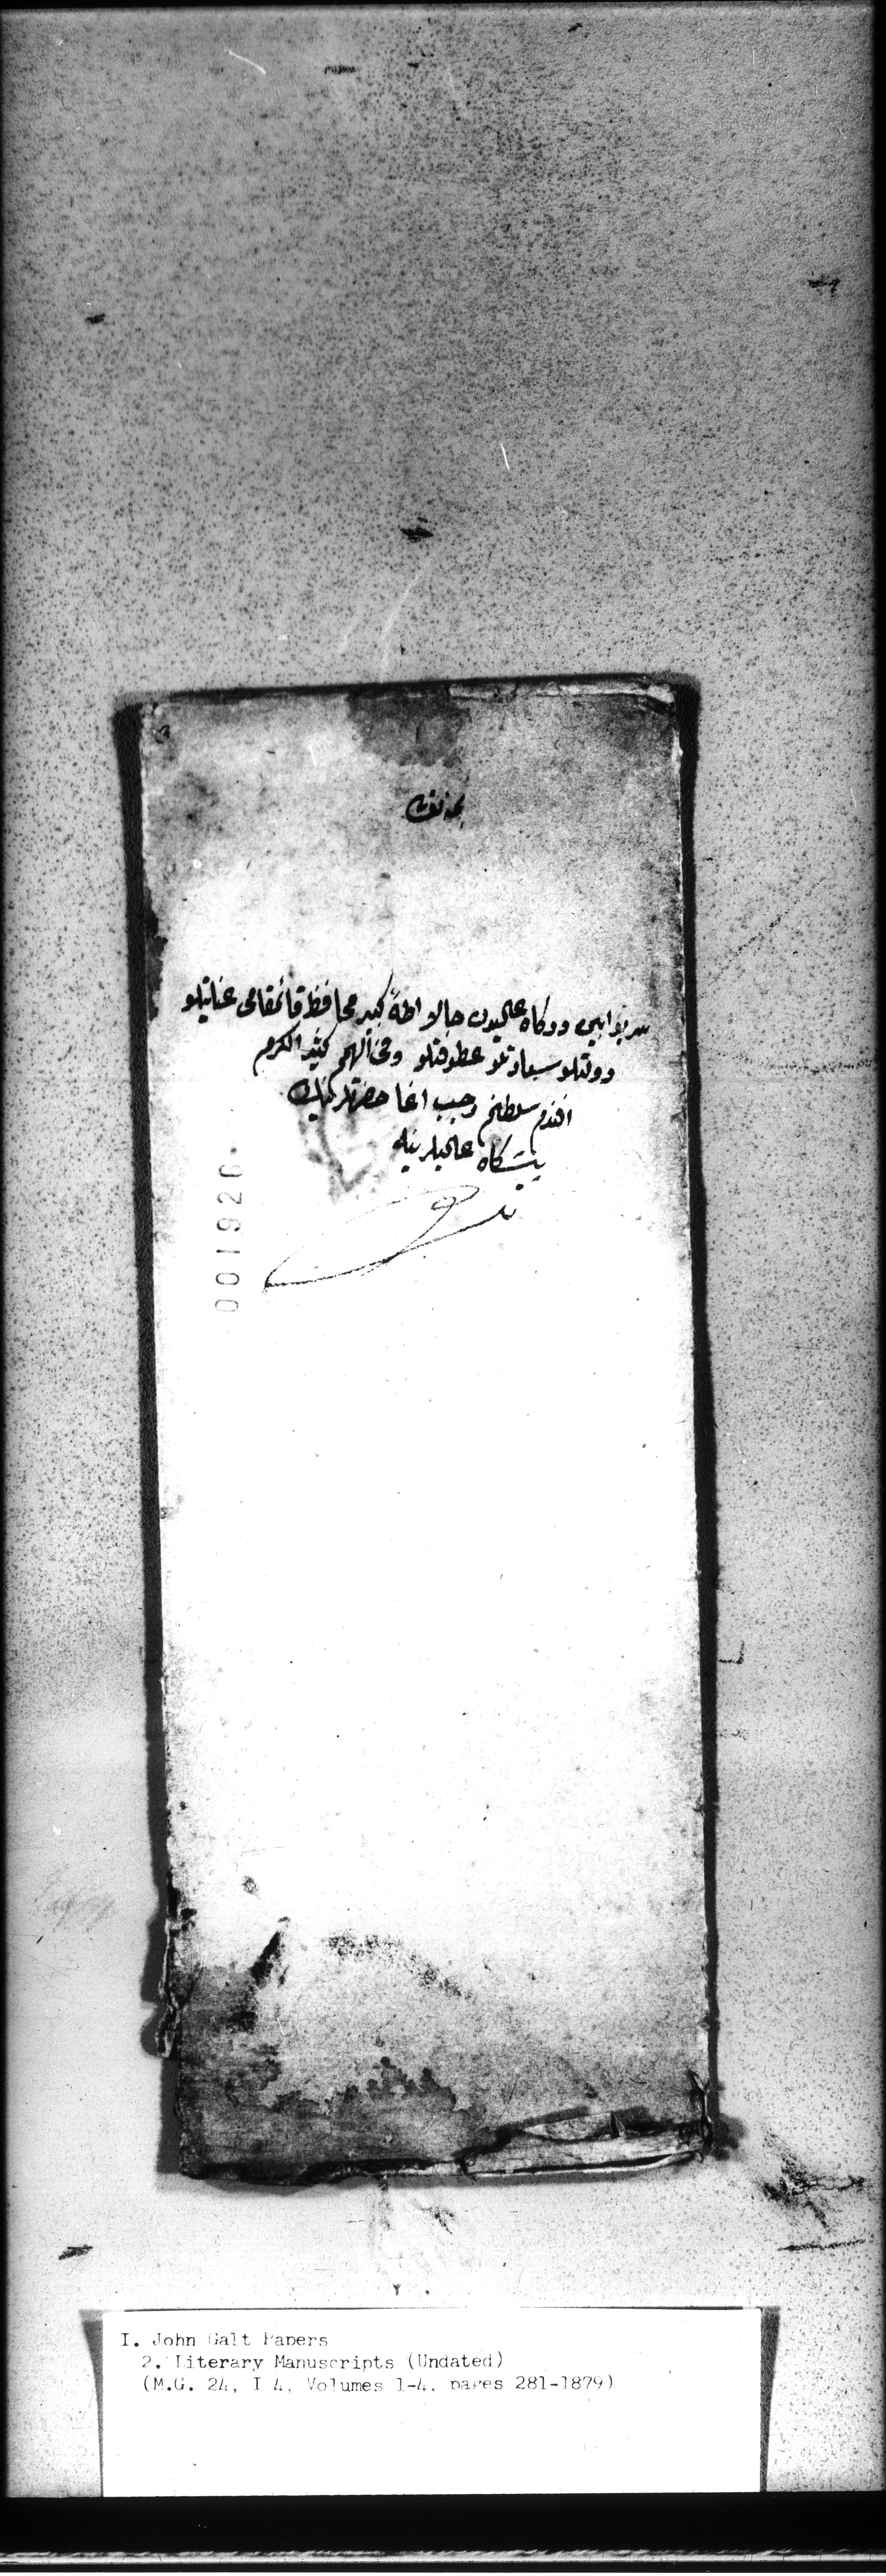 سربوابين دركاه عاليدن حالا اطهٔ كبير محافظ قائمقامى عنايتلو
دولتلو سعادتلو عطوفتلو وفى الهمم كثير الكرم
افندم سلطانم رجب اغا حضرتلرينك
پيشكاه عاليلرينه
001926
I. John Galt Papers
2. Literary Manuscripts (Undated)
(M.G. 24, I 4, Volumes 1-4, pages 281-1879)